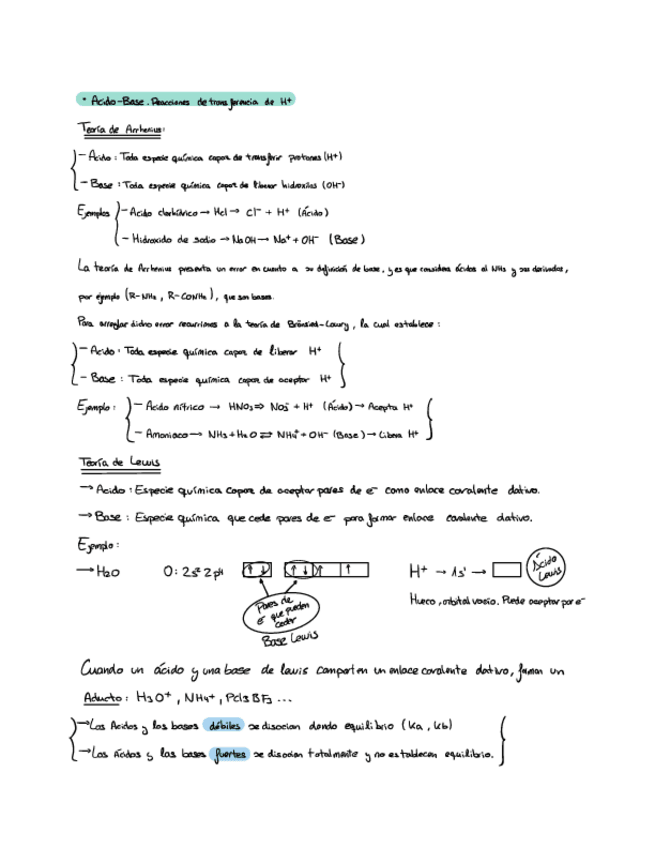 * Acido-Base. Reacciones de transferencia de H+
Teoría de Arrhenius:
- Acido: Toda especie química capaz de transferir protones (H+)
- Base: Toda especie química capaz de liberar hidroxilos (OH-)
Ejemplos - Acido clorhídrico → Hcl → Cl⁻ + H⁺ (Ácido)
- Hidroxido de sodio → NaOH → Na⁺ + OH⁻ (Base)
La teoría de Arrhenius presenta un error en cuanto a su definición de base, y es que considera ácidos al NH₃ y sus derivados,
por ejemplo (R-NH₂, R-CONH₂), que son bases.
Para arreglar dicho error recurrimos a la teoría de Brönsted-Lowry, la cual establece:
- Acido: Toda especie química capaz de liberar H+
- Base: Toda especie química capaz de aceptar H+
Ejemplo: - Acido nítrico → HNO₃ ⇒ NO₃⁻ + H⁺ (Ácido) → Acepta H⁺
- Amoniaco → NH₃ + H₂O ⇄ NH₄⁺ + OH⁻ (Base) → Libera H⁺
Teoría de Lewis
→ Acido: Especie química capaz de aceptar pares de e⁻ como enlace covalente dativo.
→ Base: Especie química que cede pares de e⁻ para formar enlace covalente dativo.
Ejemplo:
→ H₂O O: 2s² 2p⁴ H⁺ → 1s¹ → Ácido Lewis
Hueco, orbital vacío. Puede aceptar par e⁻
Pares de e⁻ que pueden ceder
Base Lewis
Cuando un ácido y una base de lewis comparten un enlace covalente dativo, forman un
Aducto: H₃O⁺, NH₄⁺, PCl₃BF₃ ...
→ Los Acidos y las bases débiles se disocian dando equilibrio (Ka, Kb)
→ Los Ácidos y las bases fuertes se disocian totalmente y no establecen equilibrio.